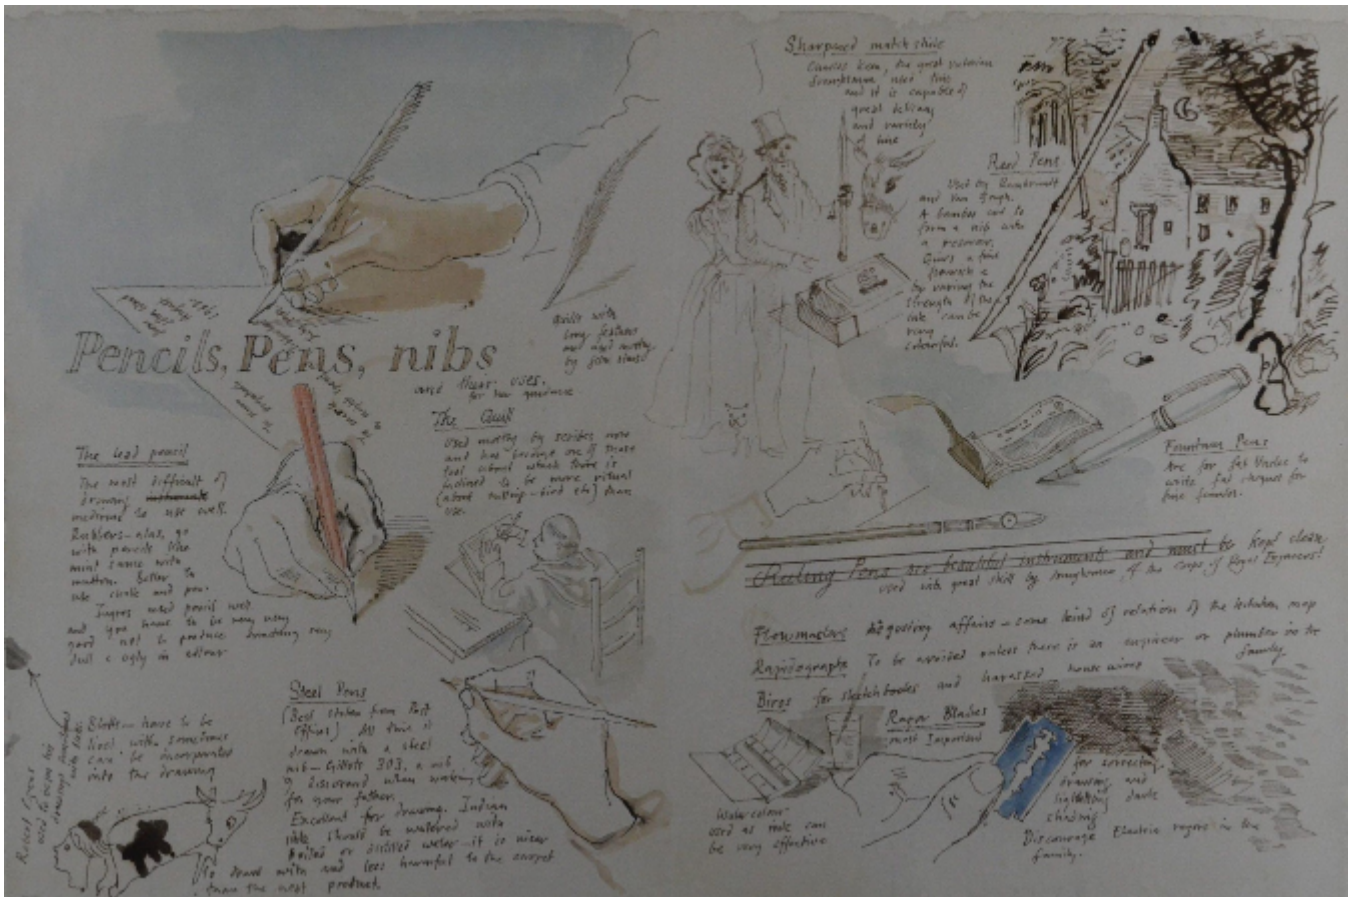 Pencils, Pens, nibs
and their uses.
for her guidance
Quills with
long feathers
are used mostly
by film stars!
The lead pencil
The most difficult of
drawing instruments
mediums to use well.
Rubbers – alas, go
with pencils like
mint sauce with
mutton. Better to
use chalk and pen.
Ingres used pencil well
and you have to be very very
good not to produce something very
dull & ugly in colour
The Quill
Used mostly by scribes now
and has become one of those
tool about which there is
inclined to be more ritual
(about cutting – bird etc) than
use.
Steel Pens
(Best stolen from Post
Offices) All this is
drawn with a steel
nib – Gillott 303, a nib
I discovered when working
for your father.
Excellent for drawing. Indian
ink should be watered with
boiled or distilled water – it is nicer
to draw with and less harmful to the carpet
than the neat product.
Blots – have to be
lived with sometimes
can be incorporated
into the drawing
used to wipe his
drawings sometimes
with
Sharpened match stick
Charles Keen, the great victorian
draughtsman used this
and it is capable of
great delicacy
and variety
of line
Reed Pens
Used by Rembrandt
and Van Gogh.
A bamboo cut to
form a nib with
a reservoir.
Gives a fine
flourish &
by varying the
strength of the
ink can be
very
colourful.
Fountain Pens
Are for fat Uncles to
write fat cheques for
fine females.
Ruling Pens are beautiful instruments and must be kept clean
used with great skill by draughtsmen of the corps of Royal Engineers!
Flowmasters disgusting affairs – some kind of relation of the lavatory mop
Rapidographs To be avoided unless there is an engineer or plumber in the
family.
Biros for sketchbooks and harassed housewives
Razor Blades
most Important
for correcting
drawing and
lightening dark
shading
Discourage Electric razors in the
family.
Water colour
used as ink can
be very effective